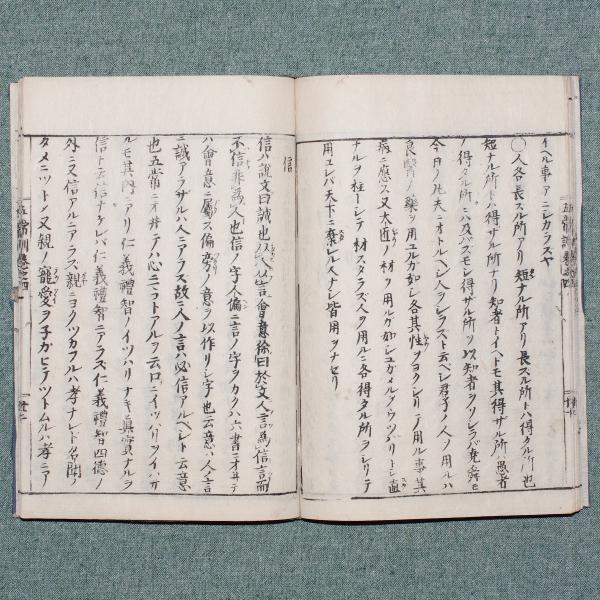 イハ事アニレカラスヤ
〇人各長スル所アリ短ナル所アリ長スル所トハ得タル所也
短ナル所トハ得ザル所ナリ知者トイヘトモ其得ザル所ハ愚者
ノ得タル所ニハ及バズモシ得ザル所ヲ以知者ヲソシラバ堯舜モ
今日ノ凡夫ニオトルベシ人ヲシレラストテ云ベシ君子ノ人ノ用ルハ
良醫ノ藥ヲ用ユルガ如シ各其性ヲヨクシリテ用ル事其
病ニ應ス又大匠ノ材ヲ用ルガ如シユガメルヲウツバリトシ直
ナルヲ柱ーシテ材スタラズ人ヲ用ルニ各得タル所ヲシリテ
用ユレバ天下ニ棄ル人ナシ皆用ヲナセリ
信
信ハ說文曰誠也从人从言會意徐曰於文人言為信言而
不信非為人也信ノ字人偏ニ言ノ字ヲカクハ六書ニオヰテ
ハ會意ニ屬ス偏旁ノ意ヲ以作リシ字也云意ハ人ノ言
ニ誠アラザルハ人ニアラズ故ニ人ノ言ハ必信アルベシト云意
也五常ニオヰテハ心ニマコトアルヲ云口ニイツハリヲイハザ
ルモ其內ニアリ仁義禮智ノイツハリナキ真實ナルヲ
信ト云信ナケレバ仁義禮智ニアラズ仁義禮智四德ノ
外ニ又信アルニアラズ親ニヨクツカフルハ孝ナレド名聞ノ
タメニツトメ又親ノ寵愛ヲ子ガヒテツトムルハ孝ニア